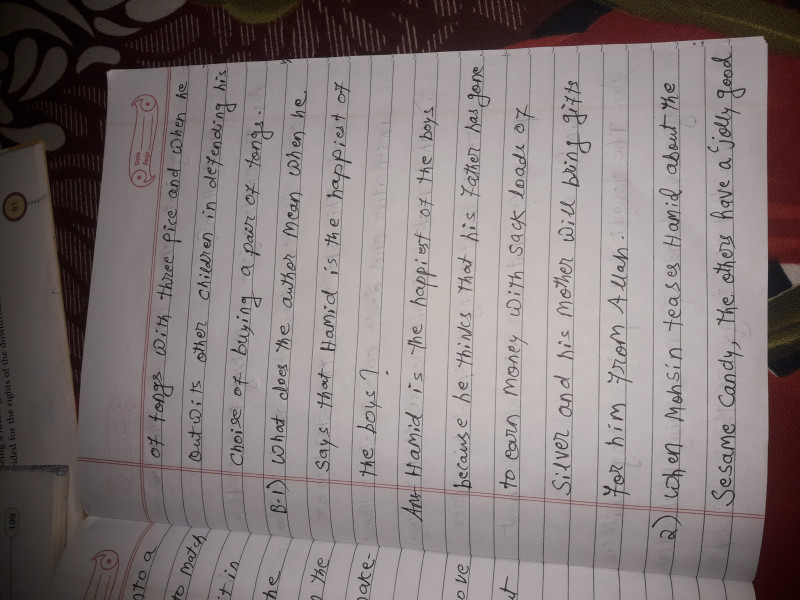 Date
Page
of tongs with three pice and when he
Outwits other children in defending his
Choise of buying a pair of tongs.
B.1) What does the author mean when he
Says that Hamid is the happiest of
the boys?
Ans Hamid is the happiest of the boys
because he thinks that his father has gone
to earn money with sack loads of
Silver and his mother will bring gifts
for him from Allah.
2) When Mohsin teases Hamid about the
Sesame Candy, the others have a 'jolly good
to a
to match
it in
the
n the
ake-
ove
ut
81
ided for the rights of the downtro
100